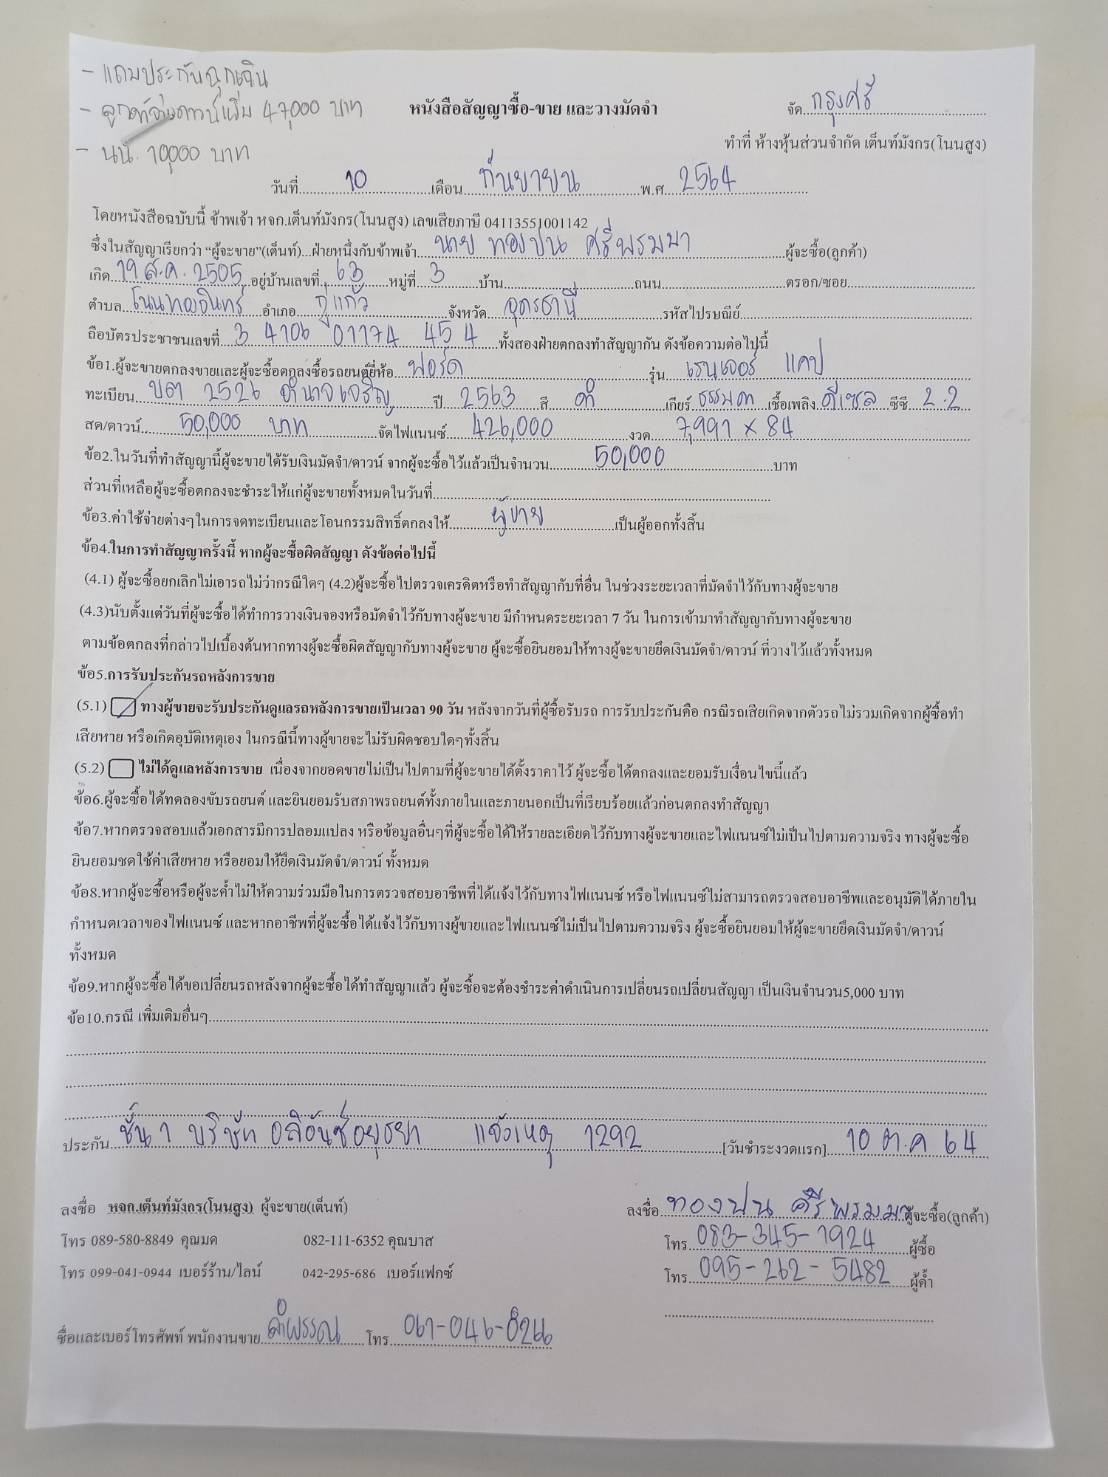 - แถมประกันฉุกเฉิน
- ลูกค้าจ่ายดาวน์เพิ่ม 47,000 บาท
- นน. 10,000 บาท
หนังสือสัญญาซื้อ-ขาย และวางมัดจำ
จัด กรุงศรี
ทำที่ ห้างหุ้นส่วนจำกัด เต็นท์มังกร(โนนสูง)
วันที่ 10 เดือน กันยายน พ.ศ. 2564
โดยหนังสือฉบับนี้ ข้าพเจ้า หจก.เต็นท์มังกร(โนนสูง) เลขเสียภาษี 04113551001142
ซึ่งในสัญญาเรียกว่า “ผู้จะขาย”(เต็นท์)...ฝ่ายหนึ่งกับข้าพเจ้า นาย ทองปน ศรีพรมมา ผู้จะซื้อ(ลูกค้า)
เกิด 19 ส.ค. 2505 อยู่บ้านเลขที่ 63 หมู่ที่ 3 บ้าน ถนน ตรอก/ซอย
ตำบล โนนทองอินทร์ อำเภอ กู่แก้ว จังหวัด อุดรธานี รหัสไปรษณีย์
ถือบัตรประชาชนเลขที่ 3 4106 01174 45 4 ทั้งสองฝ่ายตกลงทำสัญญากัน ดังข้อความต่อไปนี้
ข้อ1.ผู้จะขายตกลงขายและผู้จะซื้อตกลงซื้อรถยนต์ยี่ห้อ ฟอร์ด รุ่น เรนเจอร์ แคป
ทะเบียน บต 2526 อำนาจเจริญ ปี 2563 สี ดำ เกียร์ ธรรมดา เชื้อเพลิง ดีเซล ซีซี 2.2
สด/ดาวน์ 50,000 บาท จัดไฟแนนซ์ 426,000 งวด 7,991 x 84
ข้อ2.ในวันที่ทำสัญญานี้ผู้จะขายได้รับเงินมัดจำ/ดาวน์ จากผู้จะซื้อไว้แล้วเป็นจำนวน 50,000 บาท
ส่วนที่เหลือผู้จะซื้อตกลงจะชำระให้แก่ผู้จะขายทั้งหมดในวันที่
ข้อ3.ค่าใช้จ่ายต่างๆในการจดทะเบียนและโอนกรรมสิทธิ์ตกลงให้ ผู้ขาย เป็นผู้ออกทั้งสิ้น
ข้อ4.ในการทำสัญญาครั้งนี้ หากผู้จะซื้อผิดสัญญา ดังข้อต่อไปนี้
(4.1) ผู้จะซื้อยกเลิกไม่เอารถไม่ว่ากรณีใดๆ (4.2)ผู้จะซื้อไปตรวจเครดิตหรือทำสัญญากับที่อื่น ในช่วงระยะเวลาที่มัดจำไว้กับทางผู้จะขาย
(4.3)นับตั้งแต่วันที่ผู้จะซื้อได้ทำการวางเงินจองหรือมัดจำไว้กับทางผู้จะขาย มีกำหนดระยะเวลา 7 วัน ในการเข้ามาทำสัญญากับทางผู้จะขาย
ตามข้อตกลงที่กล่าวไปเบื้องต้นหากทางผู้จะซื้อผิดสัญญากับทางผู้จะขาย ผู้จะซื้อยินยอมให้ทางผู้จะขายยึดเงินมัดจำ/ดาวน์ ที่วางไว้แล้วทั้งหมด
ข้อ5.การรับประกันรถหลังการขาย
(5.1) ทางผู้ขายจะรับประกันดูแลรถหลังการขายเป็นเวลา 90 วัน หลังจากวันที่ผู้ซื้อรับรถ การรับประกันคือ กรณีรถเสียเกิดจากตัวรถไม่รวมเกิดจากผู้ซื้อทำ
เสียหาย หรือเกิดอุบัติเหตุเอง ในกรณีนี้ทางผู้ขายจะไม่รับผิดชอบใดๆทั้งสิ้น
(5.2) ไม่ได้ดูแลหลังการขาย เนื่องจากยอดขายไม่เป็นไปตามที่ผู้จะขายได้ตั้งราคาไว้ ผู้จะซื้อได้ตกลงและยอมรับเงื่อนไขนี้แล้ว
ข้อ6.ผู้จะซื้อได้ทดลองขับรถยนต์ และยินยอมรับสภาพรถยนต์ทั้งภายในและภายนอกเป็นที่เรียบร้อยแล้วก่อนตกลงทำสัญญา
ข้อ7.หากตรวจสอบแล้วเอกสารมีการปลอมแปลง หรือข้อมูลอื่นๆที่ผู้จะซื้อได้ให้รายละเอียดไว้กับทางผู้จะขายและไฟแนนซ์ไม่เป็นไปตามความจริง ทางผู้จะซื้อ
ยินยอมชดใช้ค่าเสียหาย หรือยอมให้ยึดเงินมัดจำ/ดาวน์ ทั้งหมด
ข้อ8.หากผู้จะซื้อหรือผู้จะค้ำไม่ให้ความร่วมมือในการตรวจสอบอาชีพที่ได้แจ้งไว้กับทางไฟแนนซ์ หรือไฟแนนซ์ไม่สามารถตรวจสอบอาชีพและอนุมัติได้ภายใน
กำหนดเวลาของไฟแนนซ์ และหากอาชีพที่ผู้จะซื้อได้แจ้งไว้กับทางผู้ขายและไฟแนนซ์ไม่เป็นไปตามความจริง ผู้จะซื้อยินยอมให้ผู้จะขายยึดเงินมัดจำ/ดาวน์
ทั้งหมด
ข้อ9.หากผู้จะซื้อได้ขอเปลี่ยนรถหลังจากผู้จะซื้อได้ทำสัญญาแล้ว ผู้จะซื้อจะต้องชำระค่าดำเนินการเปลี่ยนรถเปลี่ยนสัญญา เป็นเงินจำนวน5,000 บาท
ข้อ10.กรณี เพิ่มเติมอื่นๆ
ประกัน ชั้น 1 บริษัท อลิอันซ์อยุธยา แจ้งเหตุ 1292 [วันชำระงวดแรก] 10 ต.ค 64
ลงชื่อ หจก.เต็นท์มังกร(โนนสูง) ผู้จะขาย(เต็นท์)
ลงชื่อ ทองปน ศรีพรมมา ผู้จะซื้อ(ลูกค้า)
โทร 089-580-8849 คุณมด 082-111-6352 คุณบาส
โทร 083-345-1924 ผู้ซื้อ
โทร 099-041-0944 เบอร์ร้าน/ไลน์ 042-295-686 เบอร์แฟกซ์
โทร 095-262-5482 ผู้ค้ำ
ชื่อและเบอร์โทรศัพท์ พนักงานขาย ลำพรรณ โทร 061-046-8266